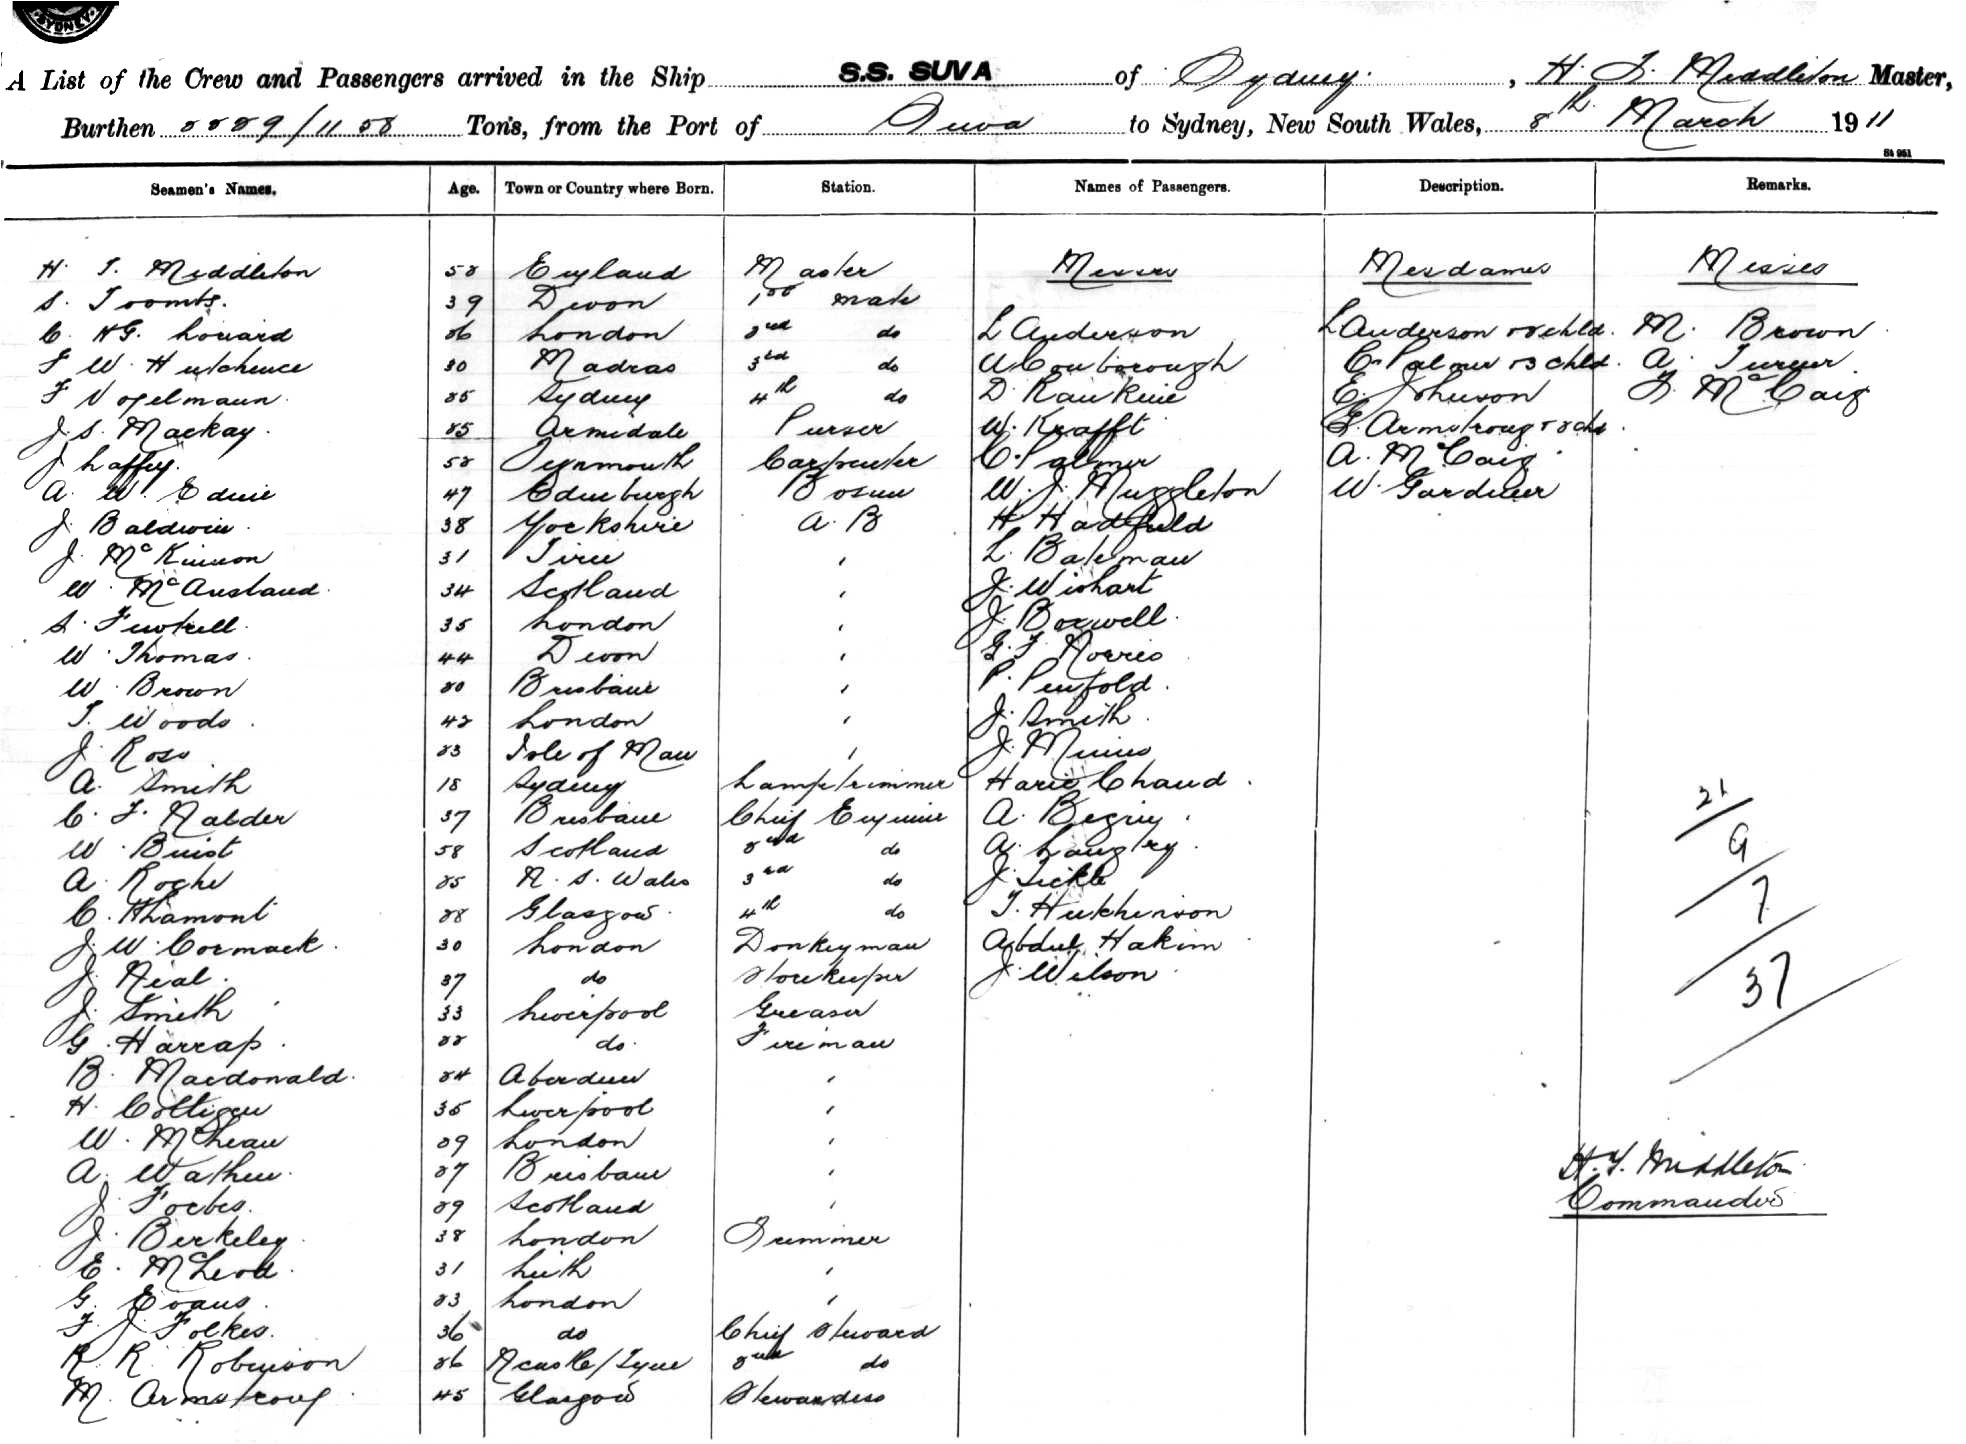 SYDNEY
A List of the Crew and Passengers arrived in the Ship S.S. SUVA of Sydney, H. T. Middleton Master,
Burthen 2229/1128 Tons, from the Port of Suva to Sydney, New South Wales, 8th March 1911
St 951
Seamen's Names. Age. Town or Country where Born. Station. Names of Passengers. Description. Remarks.
H. T. Middleton 52 England Master Messrs Mesdames Misses
S. Toombs. 39 Devon 1st mate
C. HG. Louard 26 London 2nd do L Anderson L Anderson & 2 chld. M. Brown
F W. Hutchence 30 Madras 3rd do A Conborough C. Palmer & 3 chld. A. Turner
F Vogelmann 25 Sydney 4th do D. Rankine E. Johnson F. McCaig
J. S. Mackay. 25 Armidale Purser W. Krafft G. Armstrong & 2 chs
J Laffey. 52 Teynmouth Carpenter C. Palmer A. McCaig
A. W. Ednie 47 Edinburgh Bosun W. J. Muggleton W. Gardiner
J. Baldwin 38 Yorkshire A. B H Hadfield
J. McKinnon 31 Tiree " L. Bateman
W. McAusland. 34 Scotland " J. Wishart
S. Fewtrell 35 London " J. Boxwell.
W. Thomas. 44 Devon " G. F. Norris
W. Brown 20 Brisbane " P. Penfold.
T. Woods. 42 London " J. Smith.
J. Ross 23 Isle of Man " J. Minns
A. Smith 18 Sydney Lamptrimmer Harie Chand.
C. F. Nalder 37 Brisbane Chief Engineer A. Begny. 21
W. Buist 58 Scotland 2nd do A. Langley. 9
A. Roche 25 N. S. Wales 3rd do J. Tickle 7
C. Khamont 28 Glasgow. 4th do T. Hutchinson
J. W. Cormack. 30 London Donkeyman Abdul Hakim
J. Neal. 37 do Storekeeper J. Wilson 37
J. Smith 33 Liverpool Greaser
G. Harrap. 22 do. Fireman
B. Macdonald. 24 Aberdeen "
H. Coltigen 35 Liverpool "
W. McLean 29 London "
A. Mathew. 27 Brisbane " H. T. Middleton
J. Forbes. 29 Scotland " Commander
J. Berkeley. 38 London Trimmer
E. McLeod. 31 Leith "
G. Evans. 23 London "
F. J. Folkes. 36 do Chief Steward
R. R. Robinson 26 Ncastle/Tyne 2nd do
M. Armstrong. 45 Glasgow Stewardess